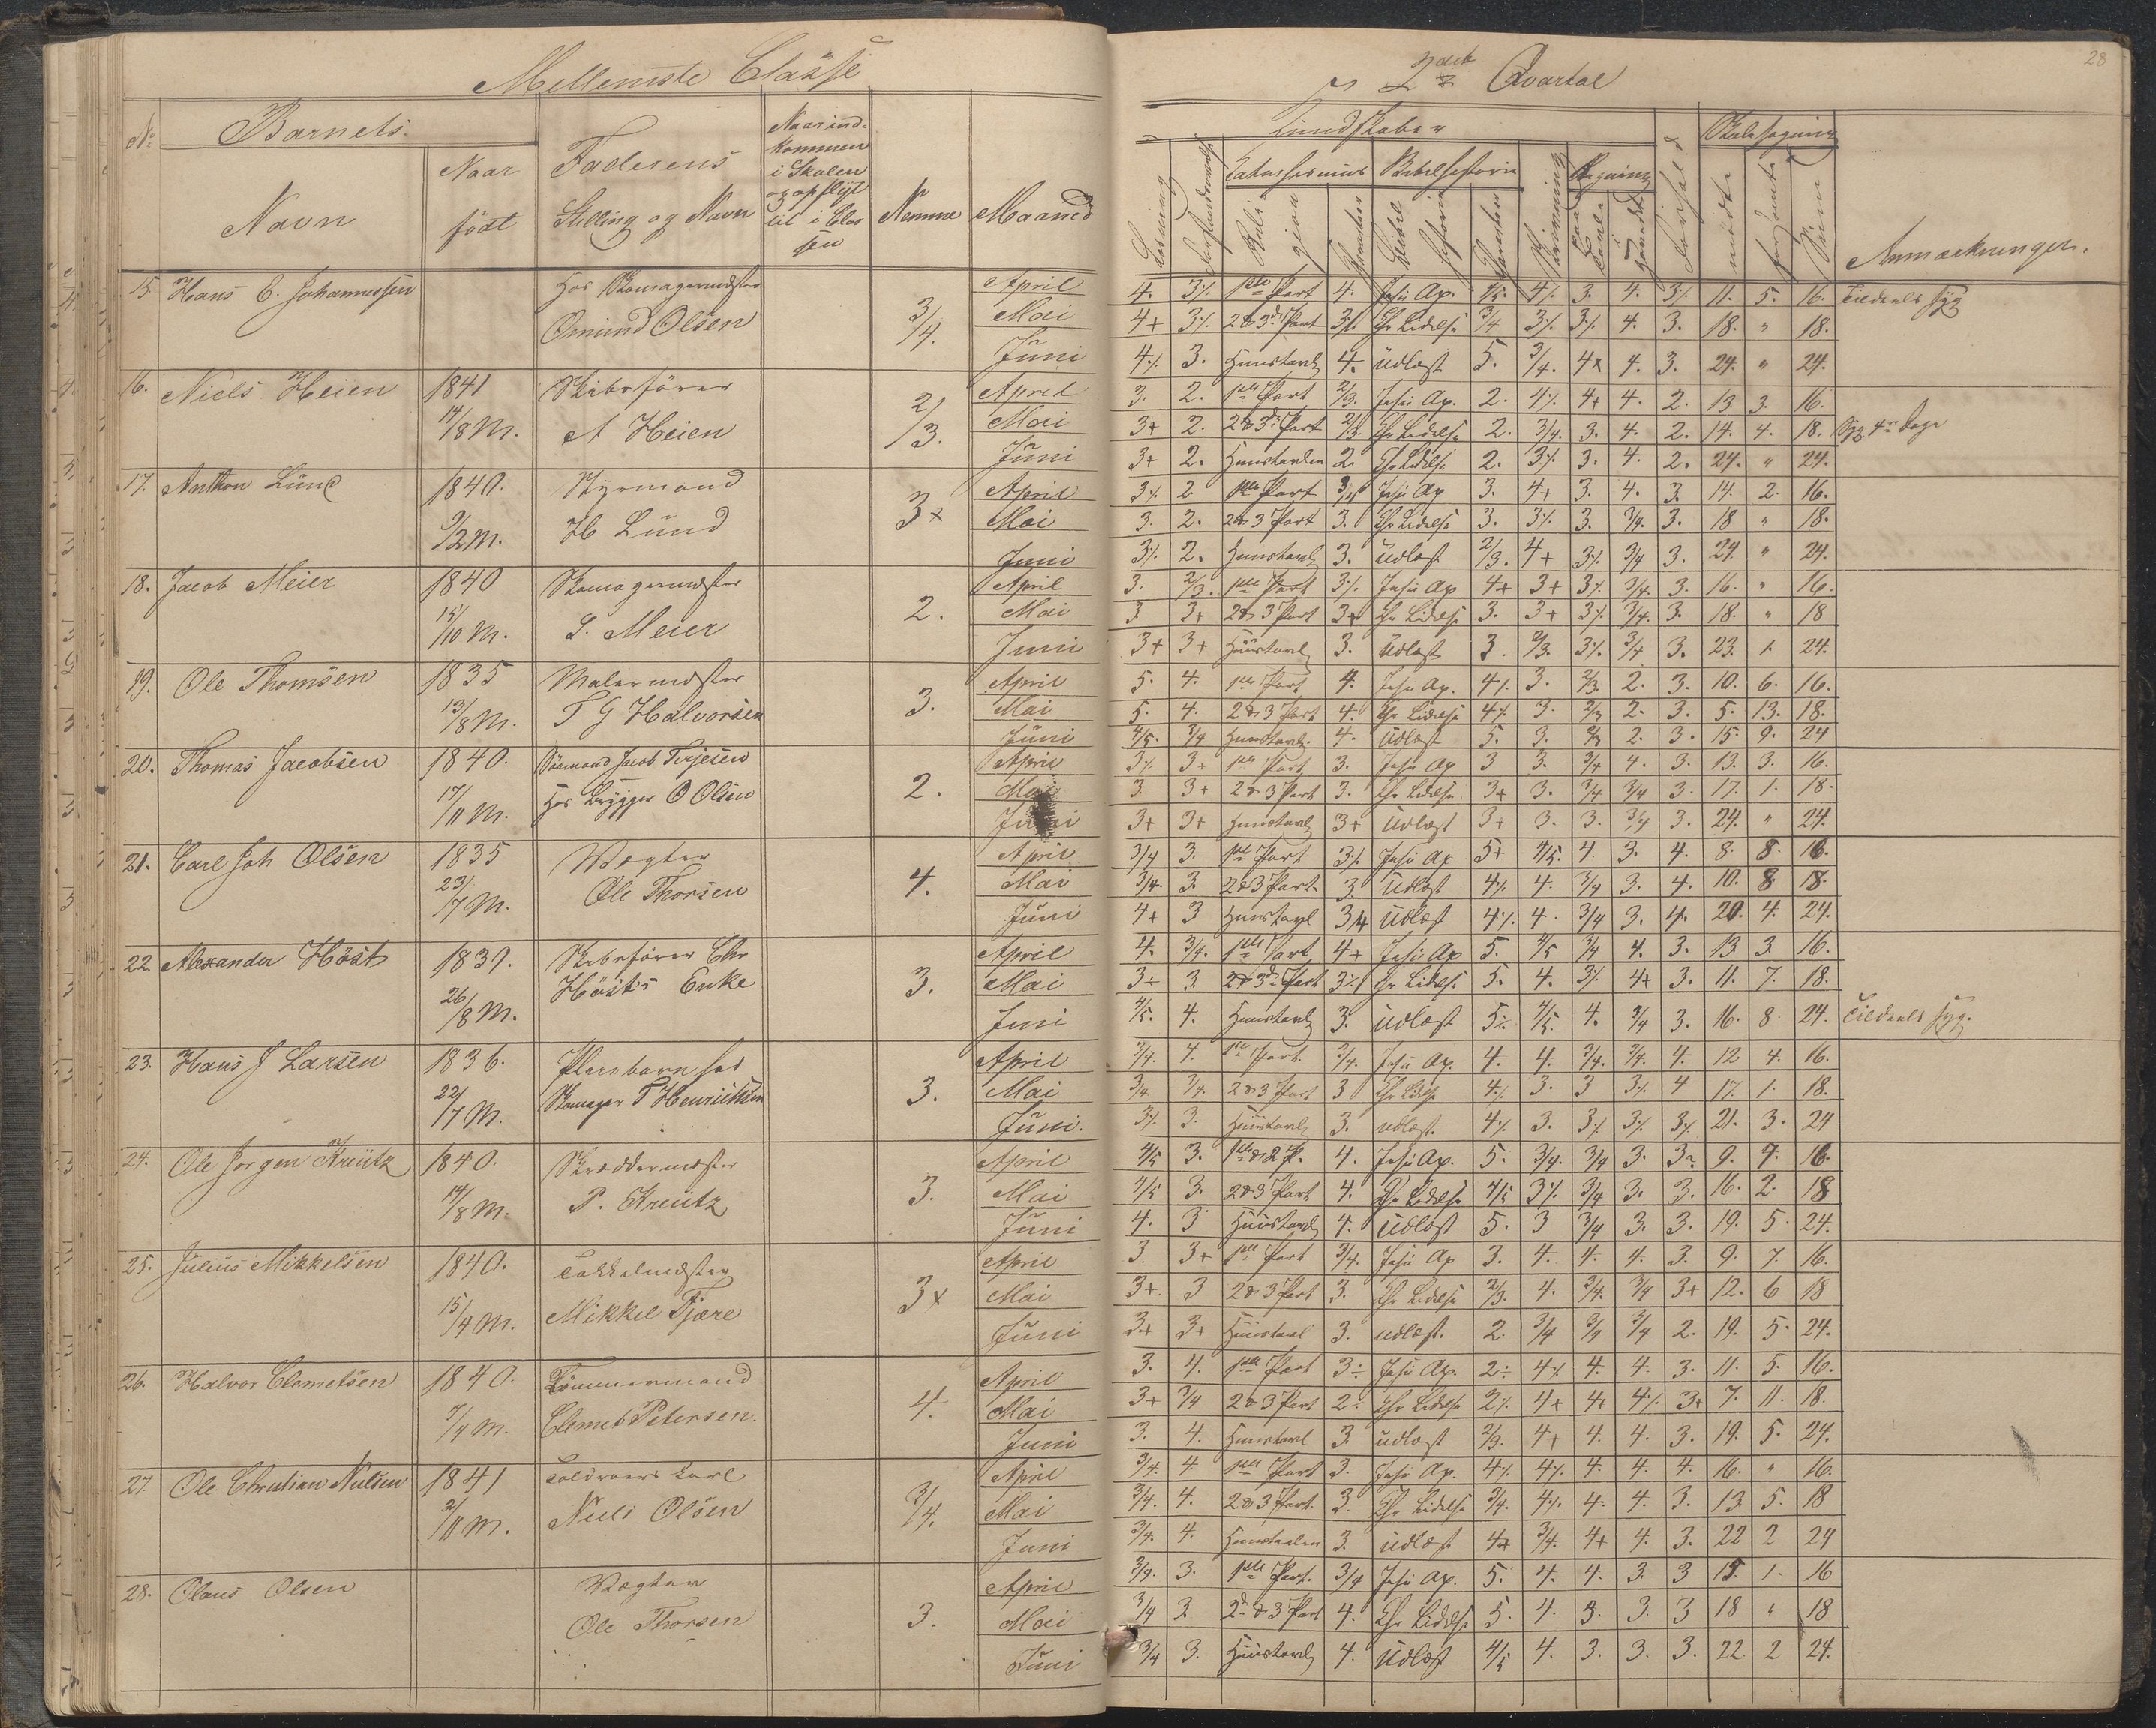 28
Mellemste Classe
2det Qvartal
No Barnets
Navn
Naar
födt
Faderens
Stilling og Navn
Naar ind-
kommen
i Skolen
og opflyt
tet i Clas
sen
Nemme
Maaned
Kundskaber
Læsning
Catechismus
Bibelhistorie
Religion
Skrivning
Regning
Skolesøgning
mødte
forsømte
Sum
Anmærkninger.
15. Hans C. Johannessen hos Skomagermester 3/4. April 4. 3% 1ste Part 4. Jesu Ap. 4/5. 4% 3. 4. 3% 11. 5. 16. Tildeels syg
Omund Olsen Mai 4+ 3% 2 & 3de Part 3% Chr Lidelse 3/4 3% 3% 4. 3. 18. " 18.
Juni 4% 3. Huustavle 4. udlæst 5. 3/4. 4+ 4. 3. 24. " 24.
16. Niels Heien 1841 Skibsfører 2/3. April 3. 2. 1ste Part 2/3. Jesu Ap. 2. 4% 4+ 4. 2. 13. 3. 16.
14/8 M. A Heien Mai 3+ 2. 2 & 3de Part 2/3. Chr Lidelse 2. 3/4. 3. 4. 2. 14. 4. 18. Syg 4re Dage
Juni 3+ 2. Huustavlen 2. Chr Lidelse 2. 3% 3. 4. 2. 24. " 24.
17. Anthon Lund 1840. Styrmand 3+ April 3% 2 1ste Part 3/4 Jesu Ap 3. 4+ 3. 4. 3. 14. 2. 16.
9/2 M. H Lund Mai 3. 2. 2 & 3 Part 3. Chr Lidelse 3. 3% 3. 3/4. 3. 18 " 18.
Juni 3% 2. Huustavle 3. udlæst 2/3. 4+ 3% 3/4 3. 24. " 24.
18. Jacob Meier 1840 Skomagermester 2. April 3. 2/3. 1ste Part 3% Jesu Ap 4+ 3+ 3% 3/4. 3. 16. " 16.
15/10 M. S. Meier Mai 3 3+ 2 & 3 Part 3+ Chr Lidelse 3. 3+ 3% 3/4. 3. 18. " 18
Juni 3+ 3+ Huustavle 3. udlæst 3. 2/3. 3% 3/4 3. 23. 1. 24.
19. Ole Thomsen 1835 Malermester 3. April 5. 4. 1ste Part 4. Jesu Ap. 4% 3. 2/3. 2. 3. 10. 6. 16.
13/8 M. T G Halvorsen Mai 5. 4. 2 & 3 Part 4. Chr Lidelse 4% 3. 2/3 2. 3. 5. 13. 18.
Juni 4/5. 3/4 Huustavle. 4. udlæst 5. 3. 2/3 2. 3. 15. 9. 24
20. Thomas Jacobsen 1840. Sömand Jacob Terjesen 2. April 3% 3+ 1ste Part 3. Jesu Ap 3 3. 3/4 4. 3. 13. 3. 16.
17/11 M. hos Brygger O Olsen Mai 3 3+ 2 & 3 Part 3. Chr Lidelse 3+ 3. 3/4 3/4 3. 17. 1. 18.
Juni 3+ 3+ Huustavle 3+ udlæst 3+ 3. 3. 3/4 3. 24. " 24.
21. Carl Joh Olsen 1835 Vægter 4. April 3/4 3. 1ste Part 3% Jesu Ap 5+ 4/5. 4. 3. 4. 8. 8. 16.
23/7 M. Ole Thorsen Mai 3/4. 3. 2 & 3 Part. 3. udlæst 4% 4. 3/4 3. 4. 10. 8 18.
Juni 4+ 3 Huustavle 3/4 udlæst 4% 4. 3/4 3. 4. 20. 4. 24.
22. Alexander Höst 1839. Skibsfører Chr 3. April 4. 3/4. 1ste Part 4+ Jesu Ap 5. 4/5 3/4 4. 3. 13. 3. 16.
26/8 M. Höst's Enke Mai 3÷ 3. 2 & 3de Part 3% Chr Lidelse 5. 4. 3% 4+ 3. 11. 7. 18.
Juni 4/5. 4. Huustavle 3. udlæst 5% 4/5. 4. 3/4 3. 16. 8. 24. Tildeels syg.
23. Hans J Larsen 1836. Pleiebarn hos 3. April 3/4. 4. 1ste Part. 3/4. Jesu Ap. 4. 4. 3/4. 3/4. 4. 12. 4. 16.
22/7 M. Skomager T Henrichsen Mai 3/4 3/4. 2 & 3 Part 3 Chr Lidelse 4% 3. 3 3% 4 17. 1. 18.
Juni. 3% 3. Huustavle 3. udlæst. 4% 3. 3% 3% 3% 21. 3. 24
24. Ole Jorgen Kreütz 1840. Skræddermester 3. April 4/5 3. 1ste & 2 P. 4. Jesu Ap. 5. 3/4. 3/4 3. 3. 9. 7. 16.
14/8 M. P. Kreütz Mai 4/5 3. 2 & 3 Part 4. Chr Lidelse 4/5 3% 3/4 3. 3. 16. 2. 18
Juni 4. 3 Huustavle 4. udlæst 5. 3 3/4 3. 3. 19. 5. 24.
25. Julius Mikkelsen 1840. Takkelmester 3+ April 3. 3+ 1ste Part 3/4. Jesu Ap 3. 4. 4. 4. 3. 9. 7. 16.
15/4 M. Mikkel Tjære Mai 3+ 3 2 & 3 Part 3. Chr Lidelse 2/3. 4. 3/4. 3/4 3+ 12. 6 18
Juni 3+ 3+ Huustavl 3. udlæst. 2. 3/4 3/4 3/4 2. 19. 5. 24.
26. Halvor Clemetsen 1840. Tömmermand 4. April 3. 4. 1ste Part 3÷ Jesu Ap. 2÷ 4% 4. 4. 3. 11. 5. 16.
7/4 M. Clemet Petersen. Mai 3+ 3/4 2 & 3 Part 2÷ Chr Lidelse 2% 4+ 4+ 4% 3+ 7. 11. 18.
Juni 3. 4. Huustavl 3. udlæst 2/3. 4+ 4. 4. 3. 19. 5. 24.
27. Ole Christian Nielsen 1841 Toldroers Karl 3/4. April 3/4. 4. 1ste Part 3. Jesu Ap. 4% 4% 4. 4. 4. 16. " 16.
2/11 M. Niels Olsen Mai 3/4. 4. 2 & 3 Part. 3. Chr Lidelse 3/4. 4% 4. 4. 3. 13. 5. 18
Juni 3/4. 4. Huustavlen 3. udlæst 4+ 3/4. 4+ 4. 3. 22 2 24
28. Olaus Olsen Vægter 3. April 3/4. 3. 1ste Part. 3/4 Jesu Ap. 5. 4. 4. 3. 3 15. 1. 16
Ole Thorsen Mai 3/4 3 2 & 3 Part 4. Chr Lidelse 5. 4. 3. 3. 3 18 " 18
Juni 3/4 3. Huustavle 4. udlæst 4/5 4. 3. 3. 3. 22. 2 24.